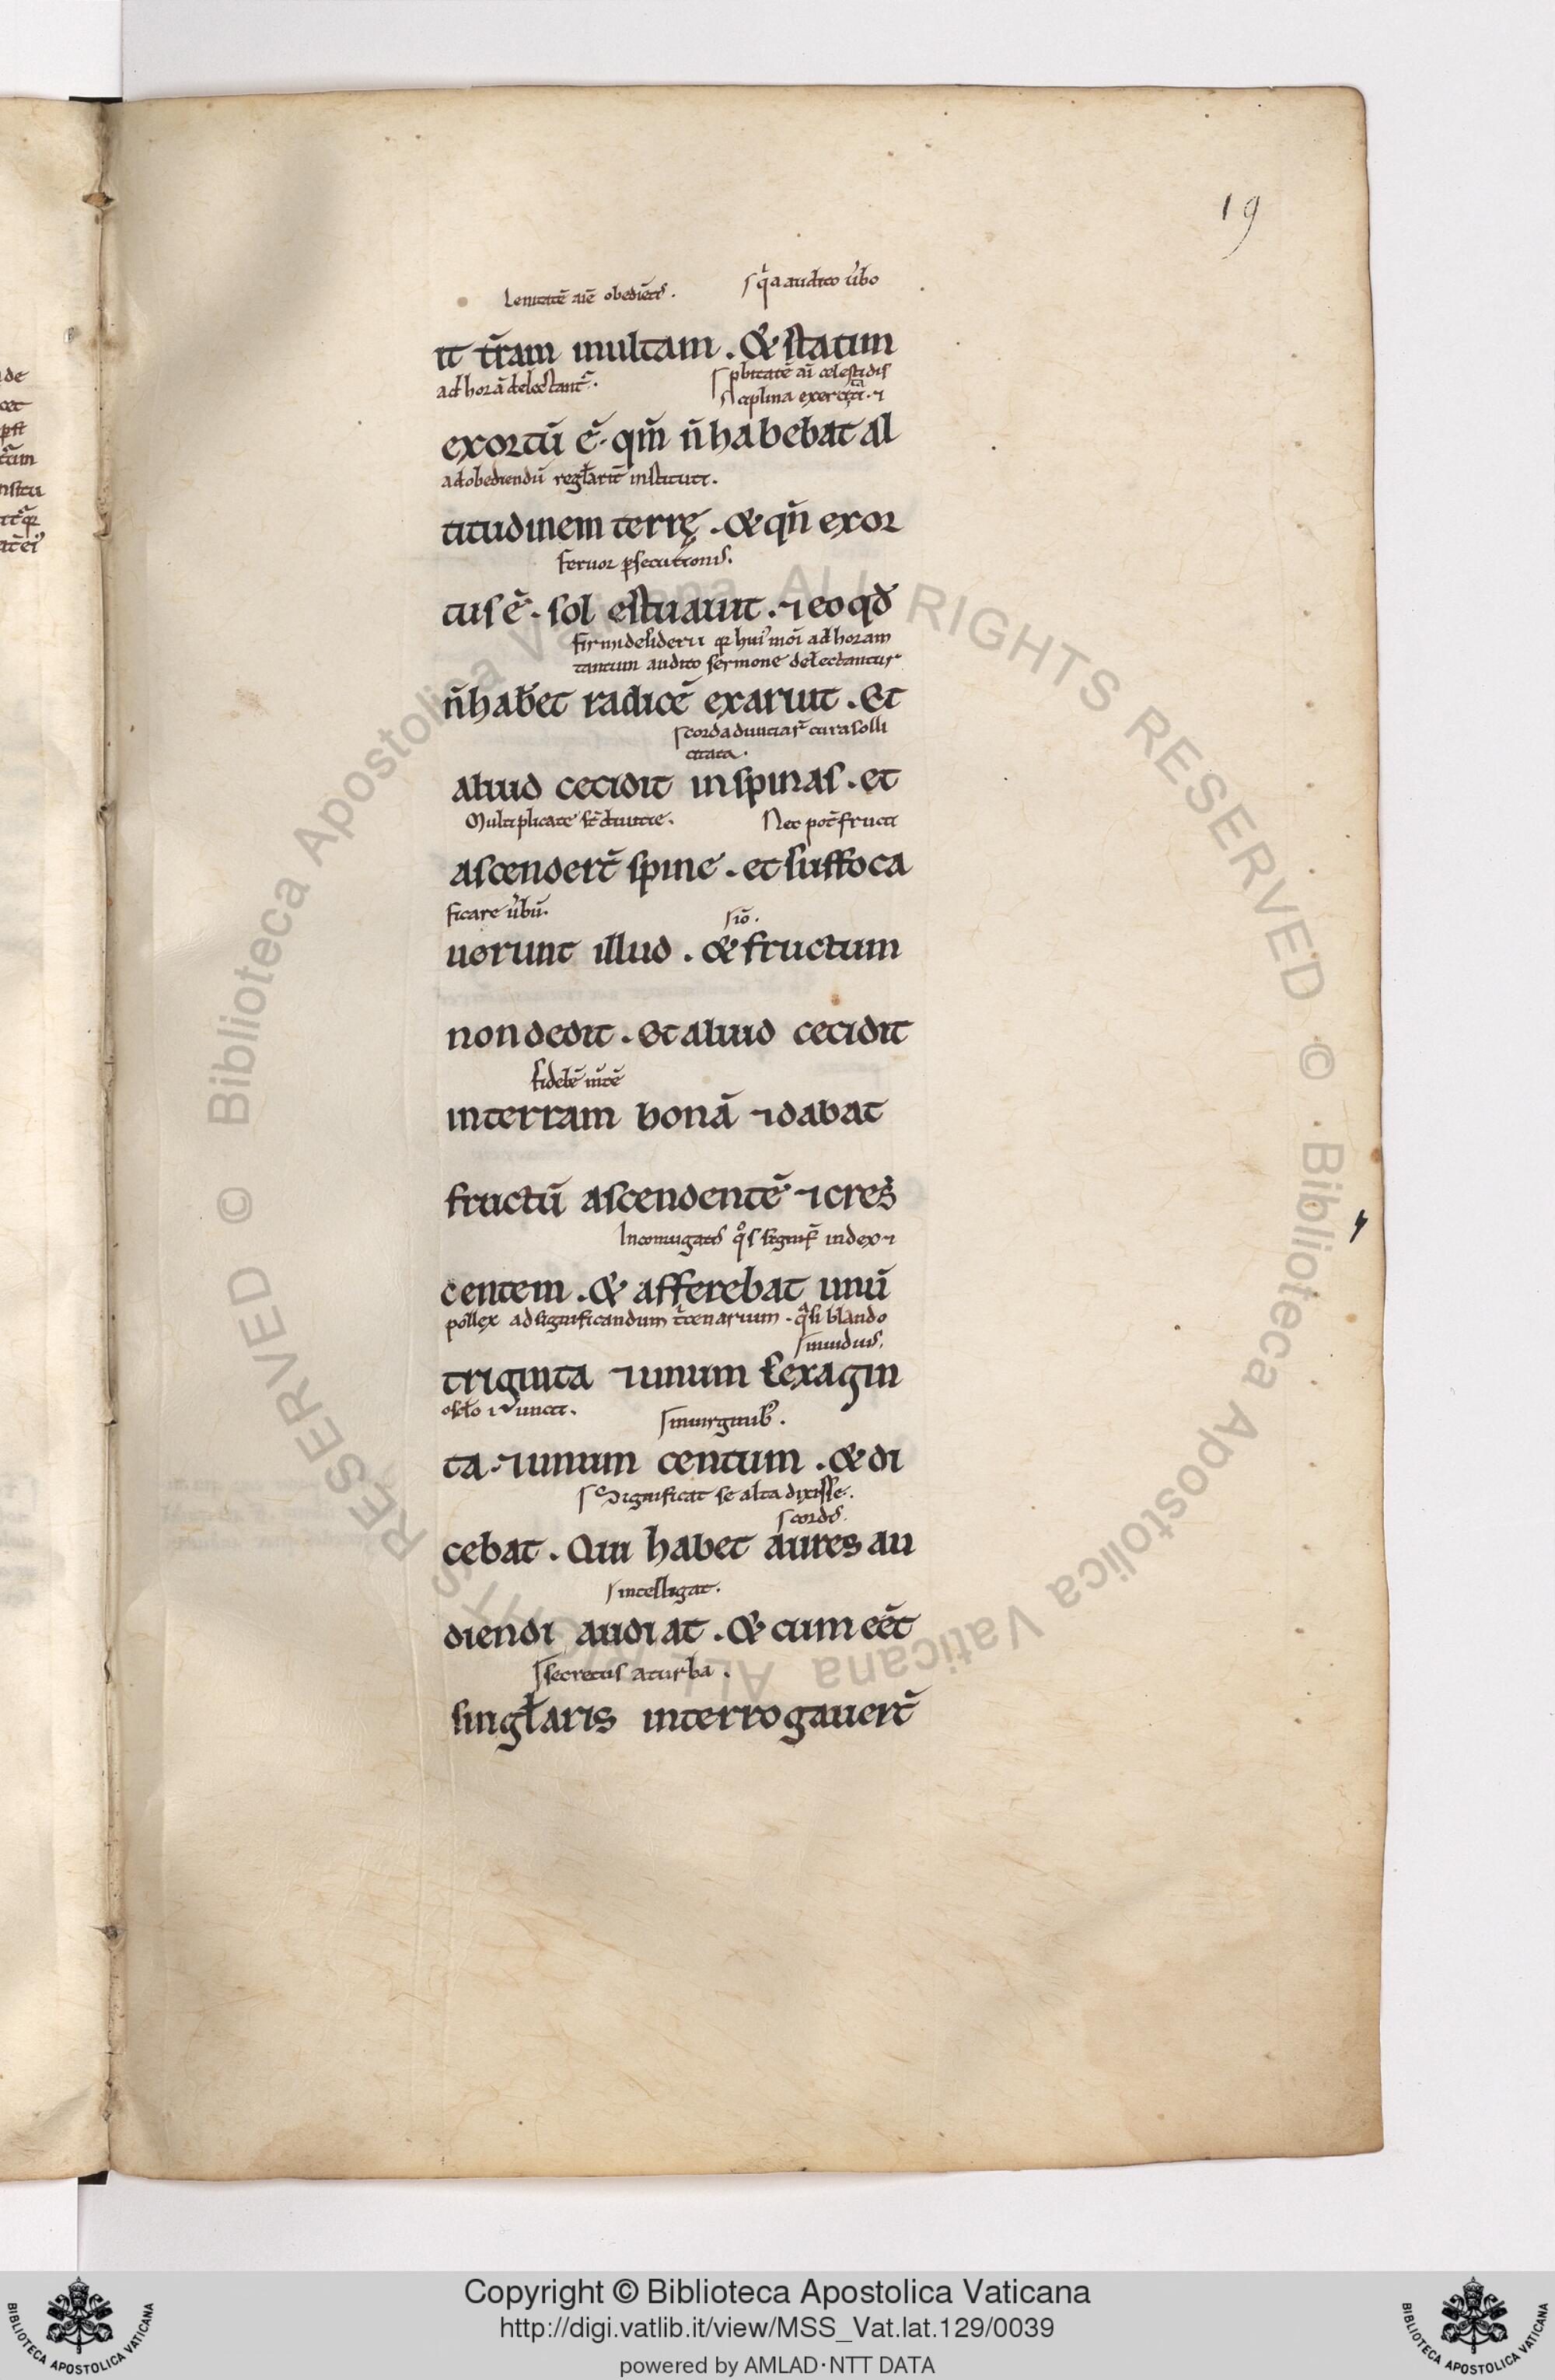 19
Lenitatē aīe obediētis. s. q̇a audito ūbo
it t̄ram multam . & statim
ad horā delectant᷑. s. ꝓbitatē aī celesti dis
ciplina exercitati. ⁊
exortū ē. qm̄ n̄ habebat al
ad obediendū regłarit᷑ instituti.
titudinem terrę . & qn̄ exor
feruor ꝑsecutionis.
tus ē . sol estuauit . ⁊ eo qđ
firmi desiderii quia hui᷒moī ad horam
tantum audito sermone delectantur
n̄ habet radicē exaruit . Et
s. corda diuitiaꝝ cura solli
citata.
aliud cecidit in spinas . et
Multiplicate st̄ diuitie. Nec pot̄ fructi
ascendert̄ spine . et suffoca
ficare ūbū. s. iō.
uerunt illud . & fructum
non dedit . Et aliud cecidit
fidelē m̄tē
in terram bonā ⁊ dabat
fructū ascendentē ⁊ cres
In coniugatis qͦs signif̄ index ⁊
centem . & afferebat unū
pollex ad significandum t̄cenarium . q̇si blando
s. in uiduis.
triginta ⁊ unum sexagin
oscło iuncti. s. in uirginib᷒.
ta . ⁊ unum centum . & di
s. Significat se alta dixisse.
s. cordis.
cebat . Qui habet aures au
s. intelligat.
diendi audiat . & cum eēt
s. secretus a turba .
singłaris interrogauert̄
de
cet
ꝑst
Copyright © Biblioteca Apostolica Vaticana
http://digi.vatlib.it/view/MSS_Vat.lat.129/0039
powered by AMLAD·NTT DATA
BIBLIOTECA APOSTOLICA VATICANA
BIBLIOTECA APOSTOLICA VATICANA
© Biblioteca Apostolica Vaticana ALL RIGHTS RESERVED © Biblioteca Apostolica Vaticana ALL RIGHTS RESERVED